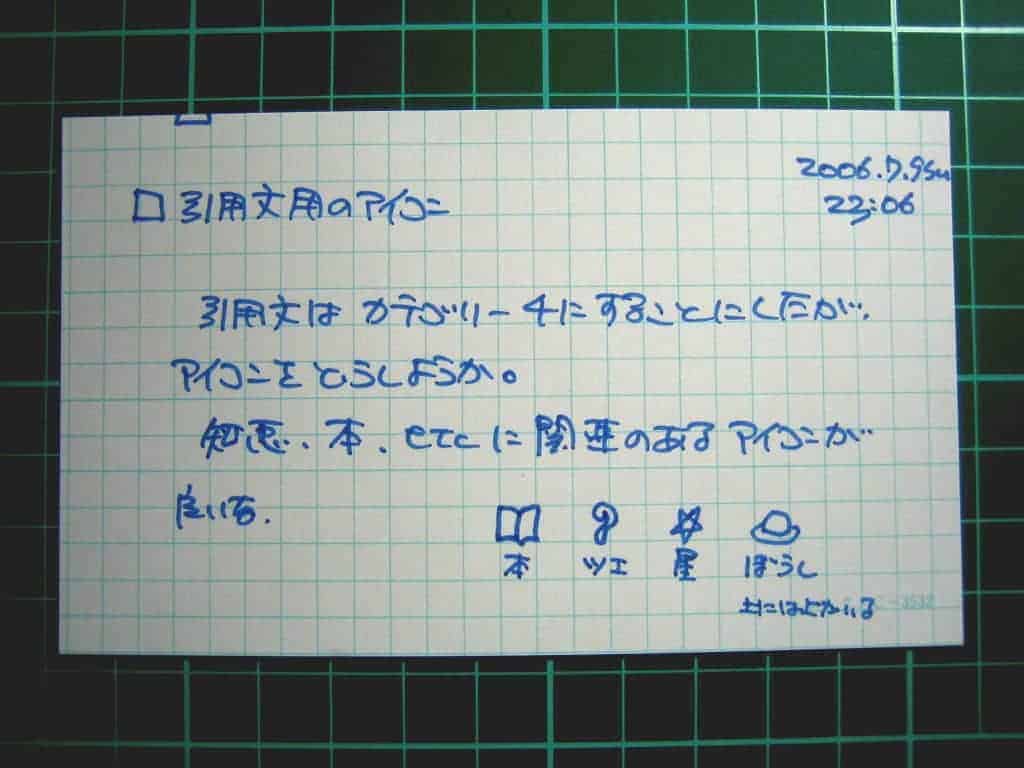 2006.7.9 Sun
22:06
□ 引用文用のアイコン
引用文は カテゴリー4にすることにしたが、
アイコンを どうしようか。
知恵、本、etcに関連のある アイコンが
良いな。
本 ツエ 星 ぼうし